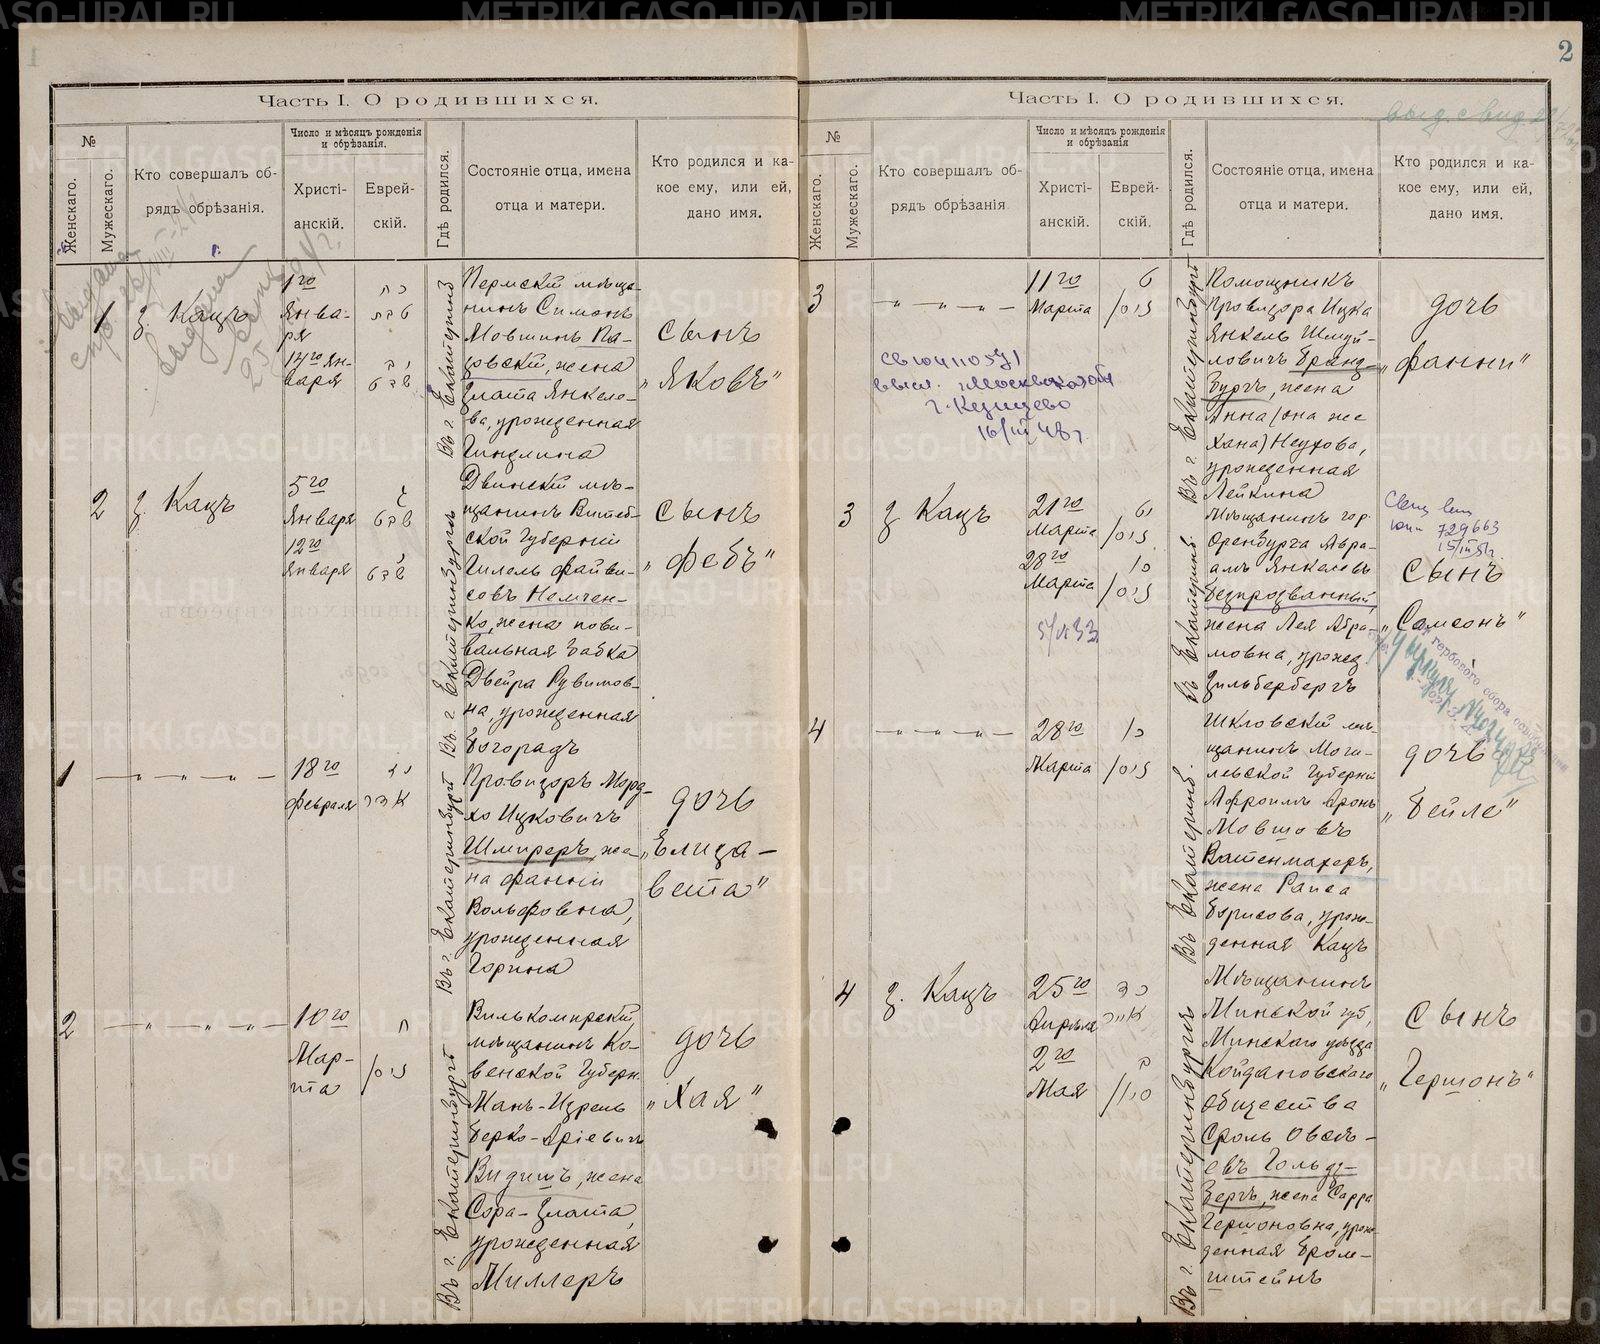 2
Часть I. О родившихся.
№
Женскаго.
Мужескаго.
Кто совершалъ об-
рядъ обрѣзанія.
Число и мѣсяцъ рожденія
и обрѣзанія.
Христі-
анскій.
Еврей-
скій.
Гдѣ родился.
Состояніе отца, имена
отца и матери.
Кто родился и ка-
кое ему, или ей,
дано имя.
1
З. Кацъ
1го
Янва-
ря
14го Ян-
варя
כח
טבת
יב
שבט
Въ г. Екатеринб
Пермскій мѣща-
нинъ Симонъ
Мовшинъ Па-
зовскій, жена
Злата Янкеле-
ва, урожденная
Гинзлина
сынъ
„Яковъ“
2
З. Кацъ
5го
Января
12го
Января
שבט
שבט
Въ г. Екатеринбургѣ
Двинскій мѣ-
щанинъ Витеб-
ской Губерніи
Гилель Файви-
совъ Немчен-
ко, жена пови-
вальная бабка
Двейра Рувимов-
на, урожденная
Богорадъ
сынъ
„Фебъ“
1
18го
Февраля
אדר
Въ г. Екатеринбургѣ
Провизоръ Морд-
хо Ицковичъ
Шпиреръ, же-
на Фанни
Вольфовна,
урожденная
Горина
дочь
„Елиза-
вета“
2
10го
Мар-
та
ח
ניסן
Въ г. Екатеринбургѣ
Вилькомирскій
мѣщанинъ Ко-
венской Губерн.
Манъ-Израель
Берко-Аріевичъ
Видишъ, жена
Сора-Злата,
урожденная
Миллеръ
дочь
„Хая“
Часть I. О родившихся.
№
Женскаго.
Мужескаго.
Кто совершалъ об-
рядъ обрѣзанія
Число и мѣсяцъ рожденія
и обрѣзанія
Христі-
анскій.
Еврей-
скій.
Гдѣ родился.
Состояніе отца, имена
отца и матери.
Кто родился и ка-
кое ему, или ей,
дано имя.
3
11го
Марта
ט
ניסן
Въ г. Екатеринбургѣ
Помощникъ
Провизора Ицка
Янкель Шмуй-
ловичъ Бранд-
бургъ, жена
Анна (она же
Хана) Неухова,
урожденная
Лейкина
дочь
„Фанни“
г. Кунцево
16/III 48г.
3
З Кацъ
21го
Марта
28го
Марта
יט
ניסן
כו
ניסן
Въ Екатеринб.
Мѣщанинъ гор.
Оренбурга Авра-
амъ Янкелевъ
Безпрозванный,
жена Лея Абра-
мовна, урожд
Зильбербергъ
сынъ
„Самсонъ“
729663
15/III 51г.
4
28го
Марта
כו
ניסן
Въ Екатеринб.
Шкловскій мѣ-
щанинъ Моги-
левской Губерніи
Афроимъ Аронъ
Мовшовъ
Ватенмахеръ,
жена Раиса
Борисова, урож-
денная Кацъ
дочь
„Бейле“
4
З. Кацъ
25го
Апрѣля
2го
Мая
כד
אייר
ב
סיון
Въ г. Екатеринбургѣ
Мѣщанинъ
Минской губ,
Минскаго уѣзда
Койдановскаго
Общества
Сроль Овсѣ-
евъ Гольд-
бергъ, жена Сарра
Гершоновна, урож-
денная Бром-
штейнъ
сынъ
„Гершонъ“
METRIKI.GASO-URAL.RU